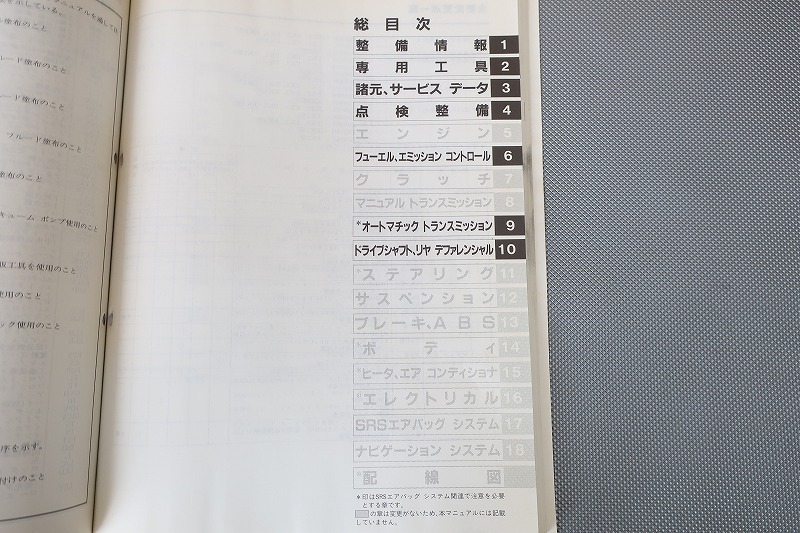 ニュアルを通して次
を示している。
塗布のこと
ルード塗布のこと
ード塗布のこと
フルード塗布のこと
塗布のこと
キューム ポンプ使用のこと
工具を使用のこと
使用のこと
ック使用のこと
序を示す。
付けのこと
総目次
整備情報 1
専用工具 2
諸元、サービス データ 3
点検整備 4
エンジン 5
フューエル、エミッション コントロール 6
クラッチ 7
マニュアル トランスミッション 8
*オートマチック トランスミッション 9
ドライブシャフト、リヤ デファレンシャル 10
*ステアリング 11
サスペンション 12
ブレーキ、ABS 13
*ボディ 14
*ヒータ、エア コンディショナ 15
*エレクトリカル 16
SRSエアバッグ システム 17
ナビゲーション システム 18
*配線図
*印はSRSエアバッグ システム関連で注意を必要
とする章です。
の章は変更がないため、本マニュアルには記載
していません。